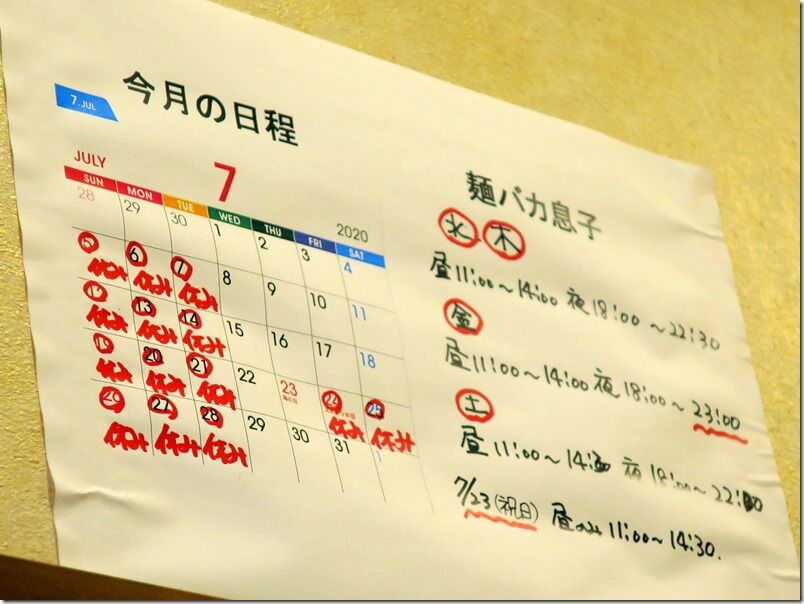 今月の日程
7.JUL
JULY
7
2020
SUN MON TUE WED THU FRI SAT
28 29 30 1 2 3 4
5 6 7 8 9 10 11
休み 休み 休み
12 13 14 15 16 17 18
休み 休み 休み
19 20 21 22 23 24 25
海の日
休み 休み 休み 休み 休み
26 27 28 29 30 31 1
休み 休み 休み
麺バカ息子
水・木
昼11:00～14:00 夜18:00～22:30
金
昼11:00～14:00 夜18:00～23:00
土
昼11:00～14:30 夜18:00～22:00
7/23(祝日) 昼のみ11:00～14:30.